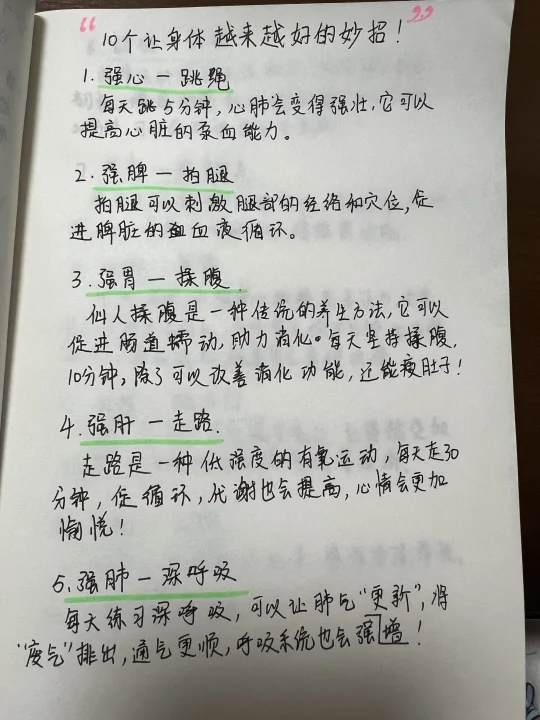 “10个让身体越来越好的妙招！”
1. 强心一跳绳
每天跳5分钟，心肺会变得强壮，它可以
提高心脏的泵血能力。
2. 强脾一拍腿
拍腿可以刺激腿部的经络和穴位，促
进脾脏的血液循环。
3. 强胃一揉腹
仙人揉腹是一种传统的养生方法，它可以
促进肠道蠕动，助力消化。每天坚持揉腹，
10分钟，除了可以改善消化功能，还能瘦肚子！
4. 强肝一走路.
走路是一种低强度的有氧运动，每天走30
分钟，促循环，代谢也会提高，心情会更加
愉悦！
5. 强肺一深呼吸
每天练习深呼吸，可以让肺气“更新”，将
“废气”排出，通气更顺，呼吸系统也会强增！